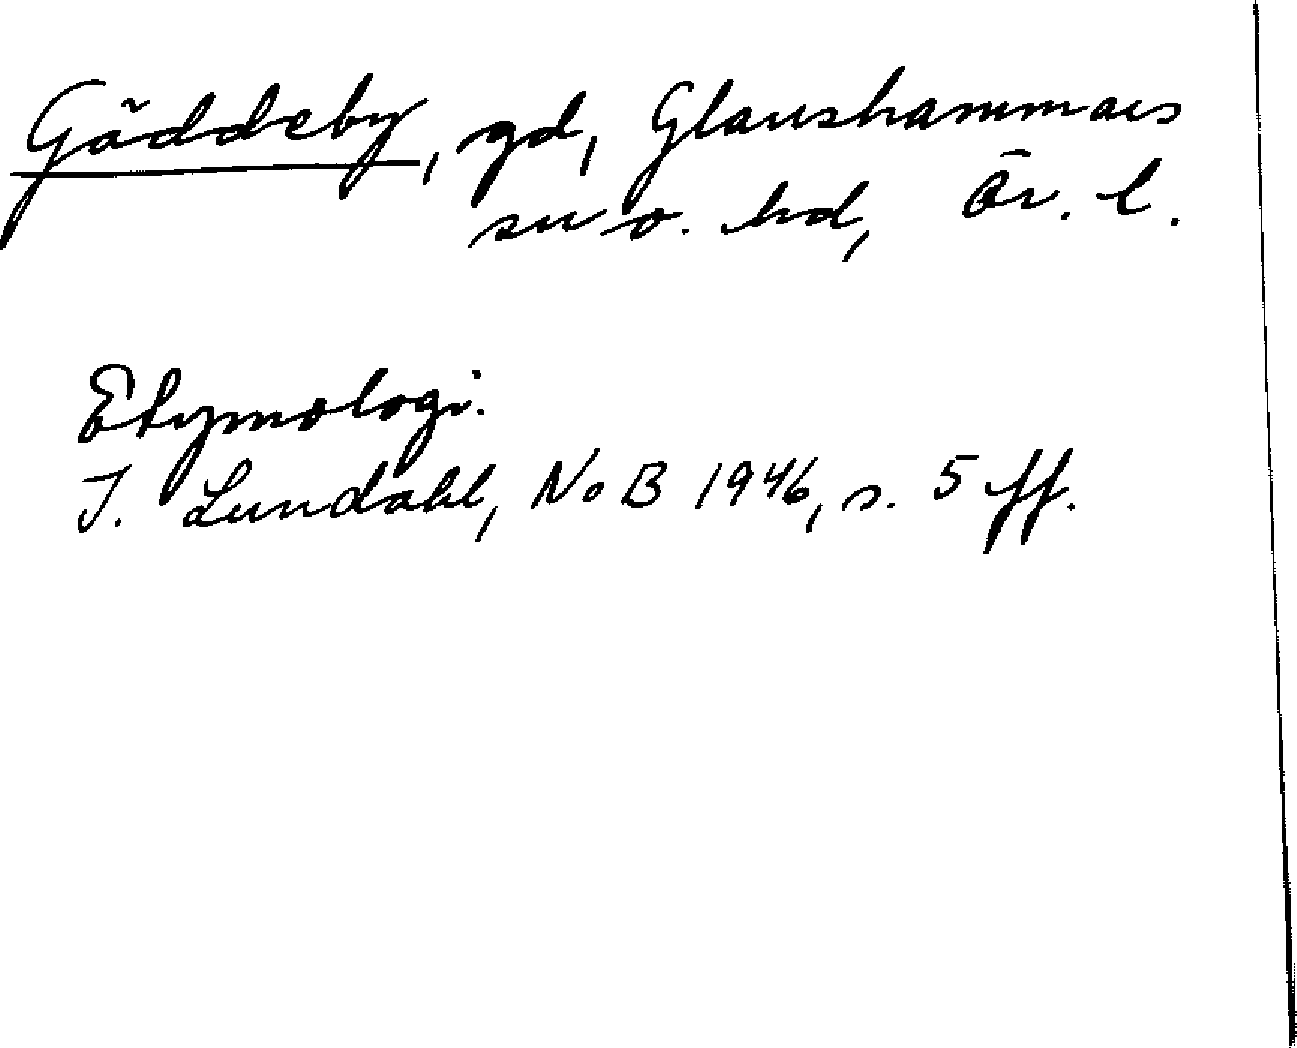 Gäddeby, gd, Glanshammars
sn o. hd, Ör. l.
Etymologi.
I. Lundahl, NoB 1946, s. 5 ff.